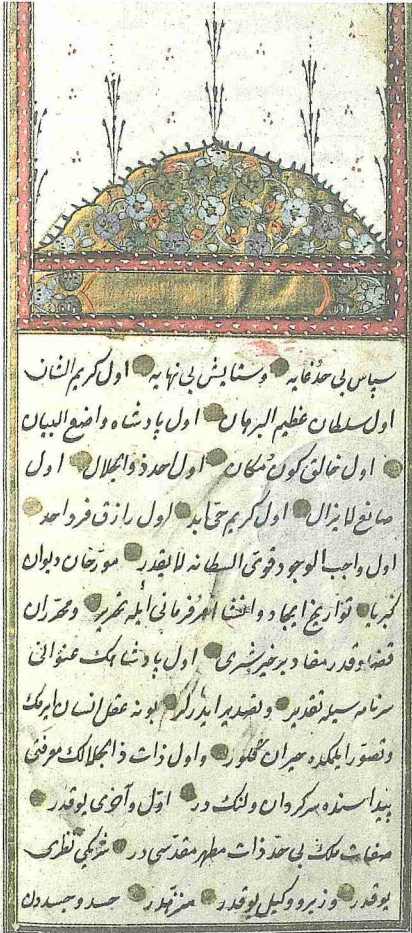 سپاس بی حد و غایه وستایش بی نهایه اول کریم الشان
اول سلطان عظیم البرهان اول پادشاه واضع البیان
اول خالق کون مکان اول احد ذوالجلال اول
صانع لا یزال اول کریم حی ابد اول رازق فرد احد
اول واجب الوجود قوی السلطانه لا یقدر مورخان دیوان
کبریا تواریخ ایجاد و انشا امر فرمانی ایله تحریر ومحرران
قضا وقدر مفاد بر خیر شری اول پادشاهک عنوانی
سرنامه سیله تقدیر وتصدیر ایدرلر بونه عقل انسان ایرمک
وتصور ایلمکده حیران کلور واول ذات ذالجلالک معرفتی
بیداسنده سرکردان ولنک در اول وآخری یوقدر
صفاتنک بی حد ذات مطهر مقدسی در شریکی نظری
یوقدر وزیر و وکیل یوقدر منزهدر جسد وجسددن